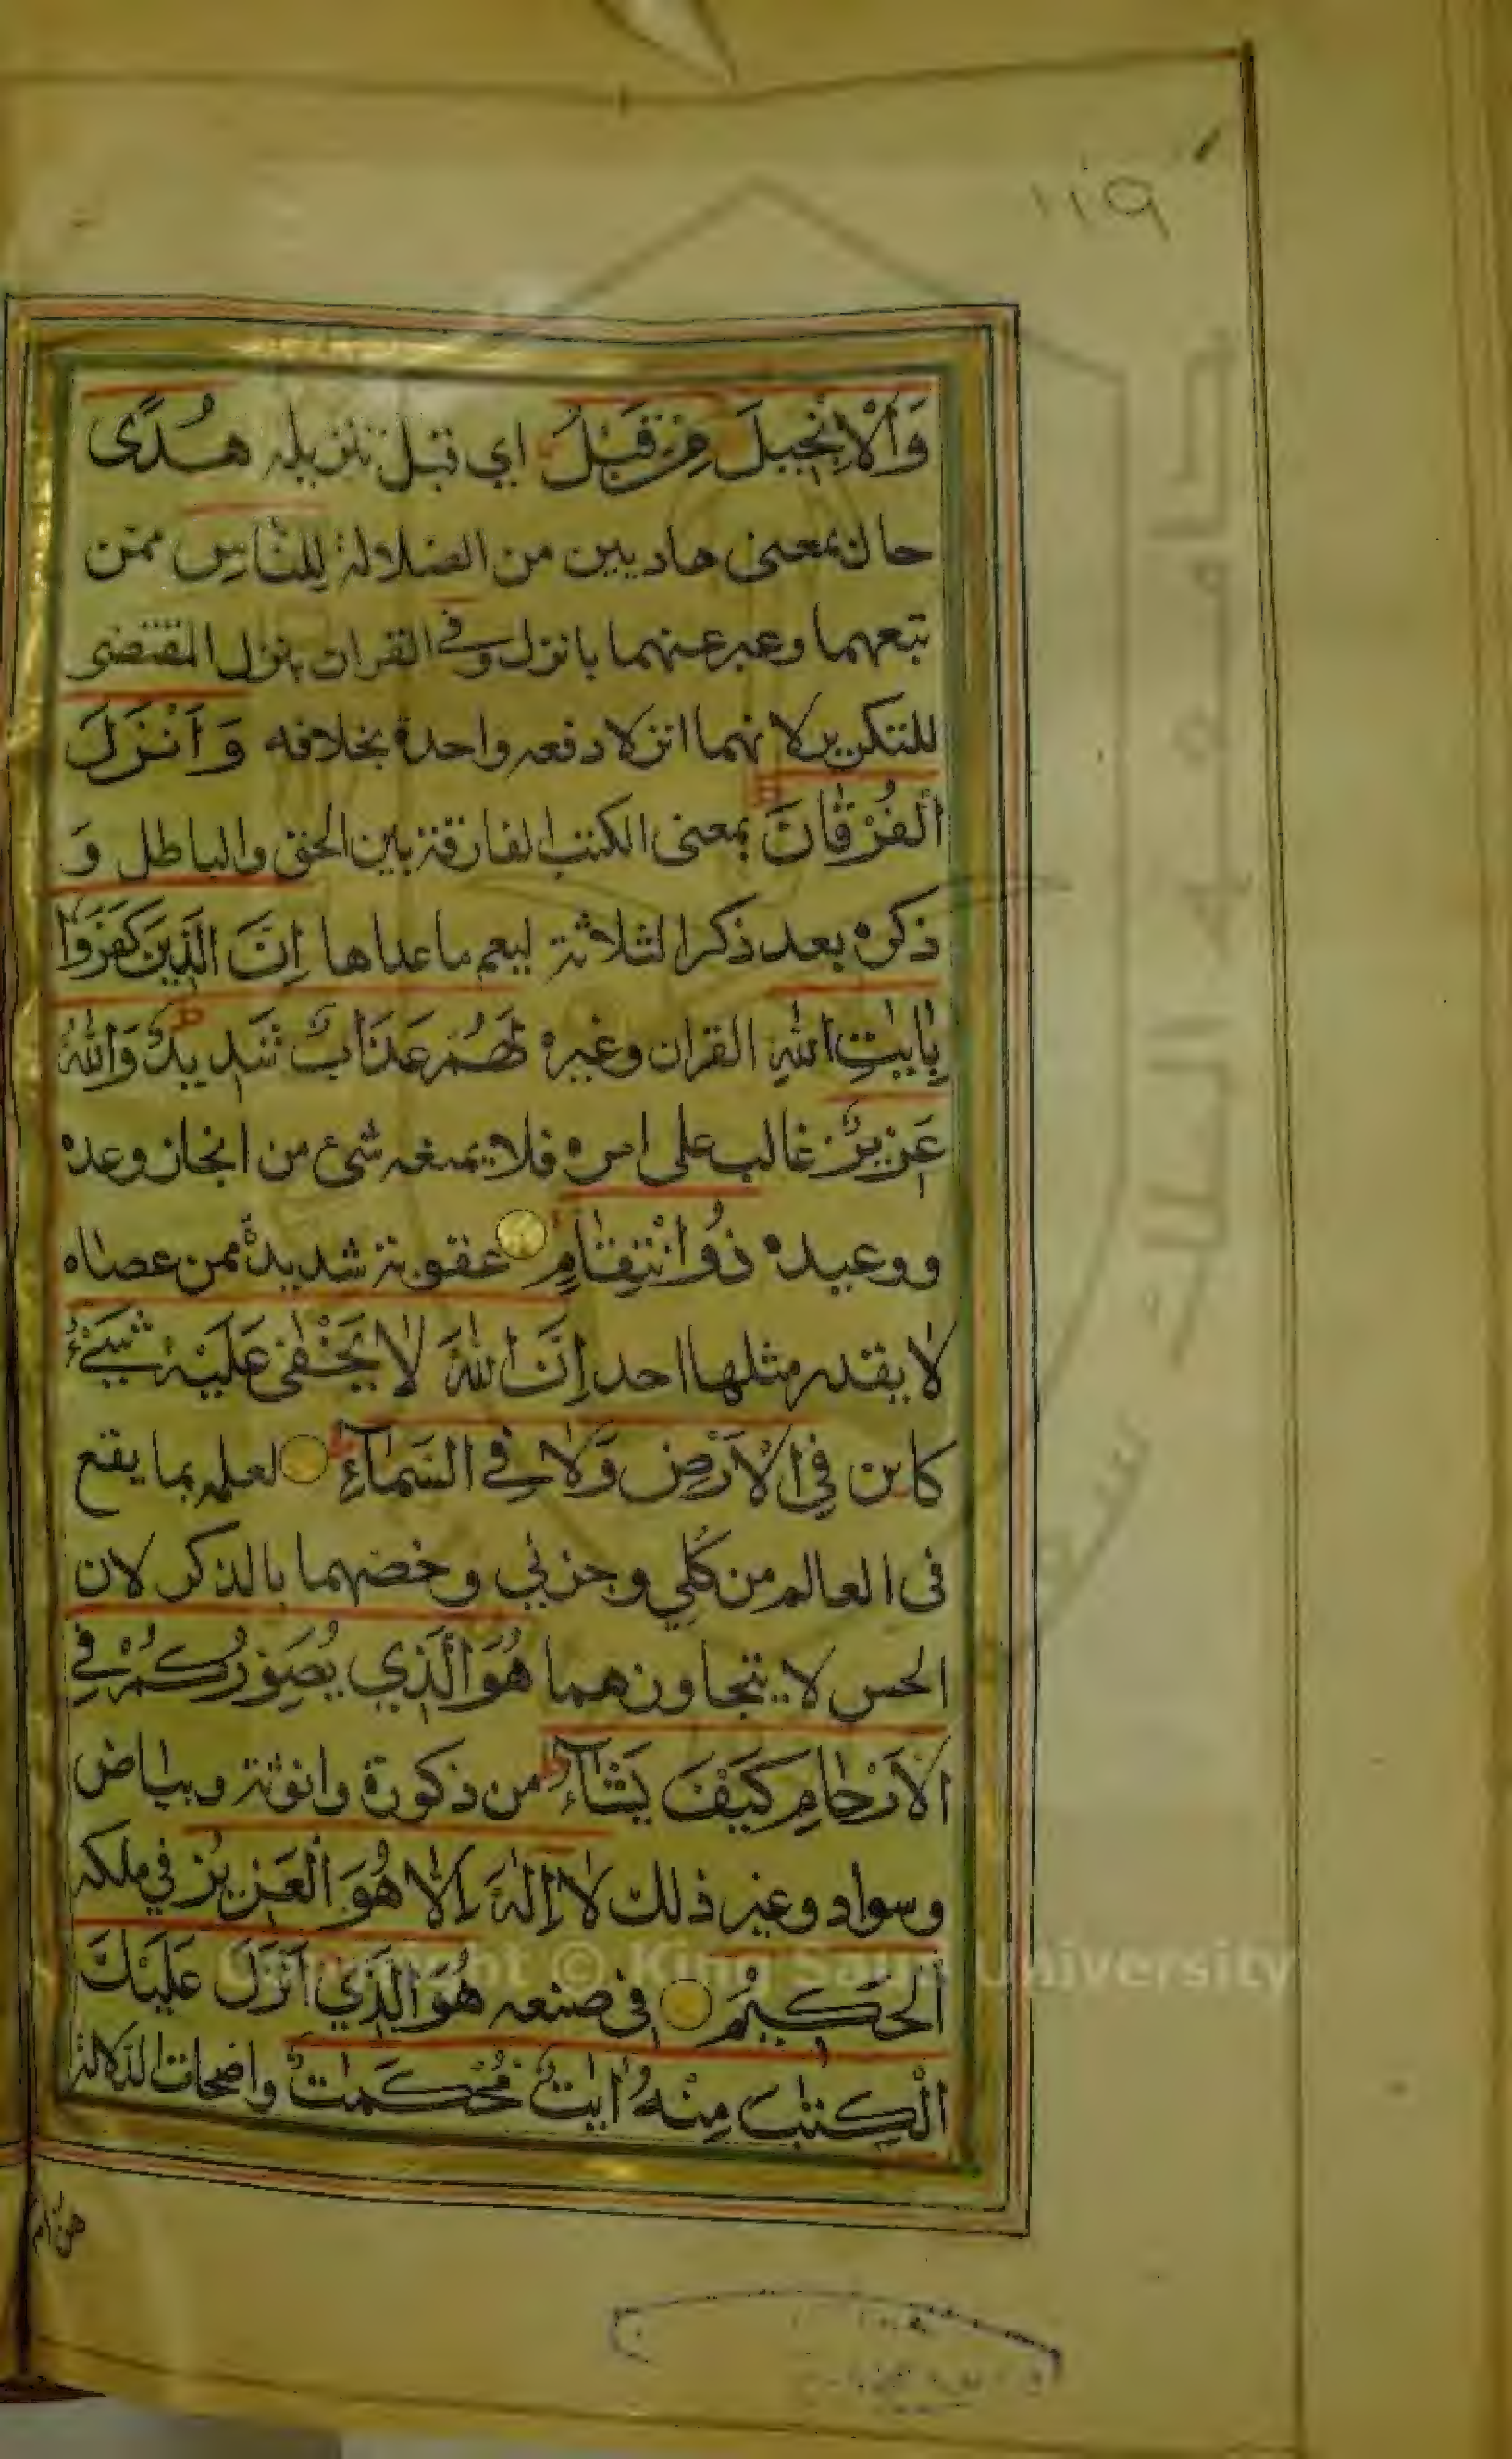 ١١٩
وَالْاِنْجِيلَ مِنْ قَبْلُ اي قبل تنزيله هُدًى
حال بمعنى هاديين من الضلالة لِلنَّاسِ ممن
تبعهما وعبر عنهما بانزل وفي القران بنزل المقتضى
للتكرير لانهما انزلا دفعه واحدة بخلافه وَاَنْزَلَ
الْفُرْقَانَ بمعنى الكتب الفارقة بين الحق والباطل وَ
ذكره بعد ذكر الثلاثة ليعم ماعداها اِنَّ الَّذِينَ كَفَرُوا
بِاٰيٰتِ اللّٰهِ القران وغيره لَهُمْ عَذَابٌ شَدِيدٌ وَاللّٰهُ
عَزِيزٌ غالب على امره فلا يمنعه شئ من انجاز وعده
ووعيده ذُو انْتِقَامٍ عقوبة شديدة ممن عصاه
لا يقدر مثلها احد اِنَّ اللّٰهَ لَا يَخْفٰى عَلَيْهِ شَيْءٌ
كاين فِي الْاَرْضِ وَلَا فِي السَّمَآءِ لعلمه بما يقع
فى العالم من كُلي وجزئي وخصهما بالذكر لان
الحس لا يتجاوزهما هُوَ الَّذِي يُصَوِّرُكُمْ فِي
الْاَرْحَامِ كَيْفَ يَشَآءُ من ذكورة وانوثة وبياض
وسواد وغير ذلك لَا اِلٰهَ اِلَّا هُوَ الْعَزِيزُ في ملكه
الْحَكِيمُ فى صنعه هُوَ الَّذِي اَنْزَلَ عَلَيْكَ
الْكِتٰبَ مِنْهُ اٰيٰتٌ مُحْكَمٰتٌ واضحات الدلالة
هن ام
جامعة الملك سعود
Copyright © King Saud University